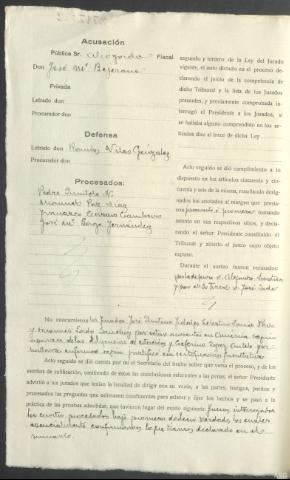 Acusación
Pública Sr. Abogado Fiscal
Don José Mª Bejarano
Privada
Letrado don
Procurador don
Defensa
Letrado don Ramón Villas González
Procurador don
Procesados:
Pedro Quintela N.
Manuel Paz Díaz
Francisco
José Mª Borge Fernández
segundo y tercero de la Ley del Jurado
vigente, el auto dictado en el proceso de-
clarando el juicio de la competencia de
dicho Tribunal y la lista de los Jurados
presentes, y previamente comprobada in-
terrogó el Presidente a los Jurados, si
se hallaba alguno comprendido en los ar-
tículos diez al doce de dicha Ley
Acto seguido se dió cumplimiento a lo
dispuesto en los artículos cincuenta y cin-
cuenta y seis de la misma, resultando desig-
nados los anotados al margen que presta-
ron juramento o promesa tomando
asiento en sus respectivos sitios, y decla-
rando el señor Presidente constituído el
Tribunal y abierto el juicio cuyo objeto
expuso.
Durante el sorteo fueron recusados:
por la defensa D. Alejandro
y por el Sr. Fiscal D. José
No comparecieron los Jurados José Quintana
por estar ausente en América según
aparece de las diligencias de citación y Ceferino López
hallarse enfermo según justificó con certificación facultativa
Acto seguido se dió cuenta por mí el Secretario del hecho sobre que versa el proceso, y de los
escritos de calificación, omitiendo de éstos las conclusiones referentes a las penas; el señor Presidente
advirtió a los jurados que tenían la facultad de dirigir con su venia, a las partes, testigos, peritos y
procesados las preguntas que estimasen conducentes para aclarar y fijar los hechos y se pasó a la
práctica de las pruebas admitidas, que tuvieron lugar del modo siguiente: Fueron interrogados
los cuatro procesados bajo promesa de decir verdad, los cuales
esencialmente confirmaron lo que tienen declarado en el
sumario.